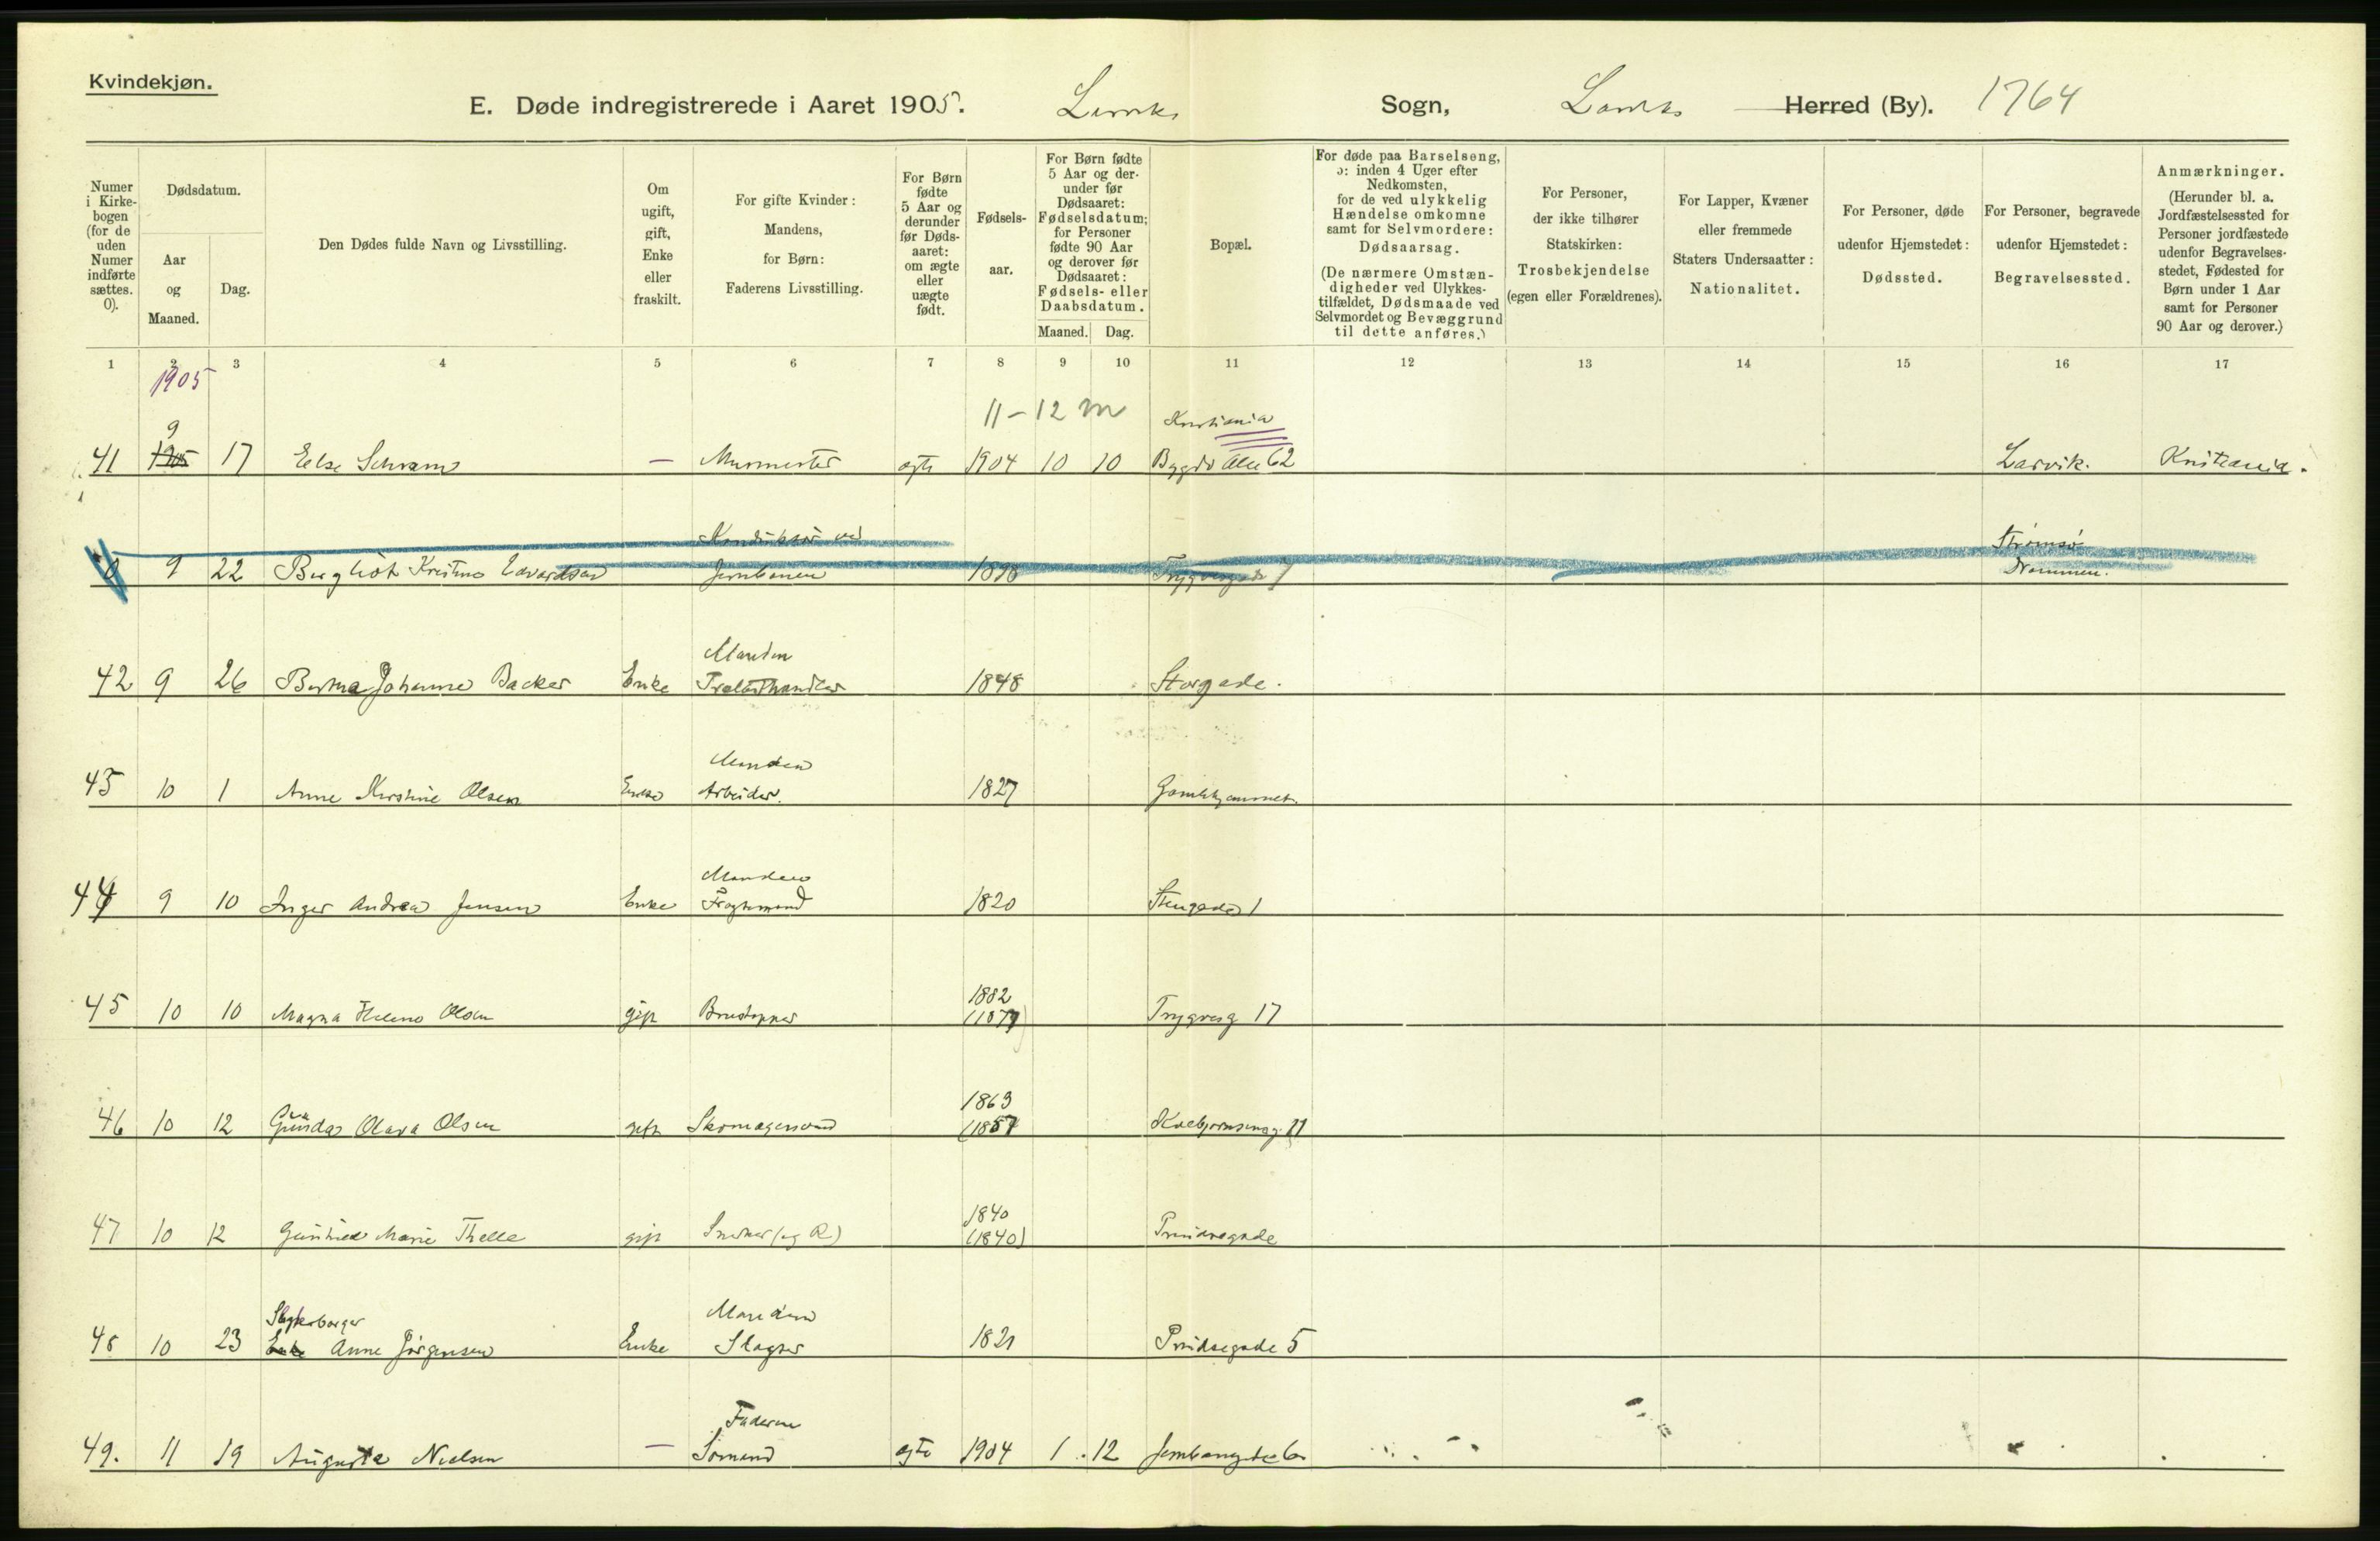 Kvindekjøn.
E. Døde indregistrerede i Aaret 1905. Larvik Sogn, Larvik Herred (By). 1764
Numer i Kirke-bogen (for de uden Numer indførte sættes. 0).
Dødsdatum.
Aar og Maaned.
Dag.
Den Dødes fulde Navn og Livsstilling.
Om ugift, gift, Enke eller fraskilt.
For gifte Kvinder: Mandens, for Børn: Faderens Livsstilling.
For Børn fødte 5 Aar og derunder før Døds-aaret: om ægte eller uægte født.
Fødsels-aar.
For Børn fødte 5 Aar og der-under før Dødsaaret: Fødselsdatum; for Personer fødte 90 Aar og derover før Dødsaaret: Fødsels- eller Daabsdatum.
Maaned. Dag.
Bopæl.
For døde paa Barselseng, ɔ: inden 4 Uger efter Nedkomsten, for de ved ulykkelig Hændelse omkomne samt for Selvmordere: Dødsaarsag.
(De nærmere Omstæn-digheder ved Ulykkes-tilfældet, Dødsmaade ved Selvmordet og Bevæggrund til dette anføres.)
For Personer, der ikke tilhører Statskirken: Trosbekjendelse (egen eller Forældrenes).
For Lapper, Kvæner eller fremmede Staters Undersaatter: Nationalitet.
For Personer, døde udenfor Hjemstedet: Dødssted.
For Personer, begravede udenfor Hjemstedet: Begravelsessted.
Anmærkninger.
(Herunder bl. a. Jordfæstelsessted for Personer jordfæstede udenfor Begravelses-stedet, Fødested for Børn under 1 Aar samt for Personer 90 Aar og derover.)
1 2 3 4 5 6 7 8 9 10 11 12 13 14 15 16 17
1905
11-12 m
Kristiania
9
41 1905 17 Else Schram — Murmester ægte 1904 10 10 Bygdø Alle 62 Larvik. Kristiania.
Konduktør ved Strømsø
0 9 22 Bergliot Kristine Edvardsen Jernbanen 1898 Trygvesgade 7 Drammen.
Manden
42 9 26 Berna Johanne Backer Enke Trælasthandler 1848 Storgade.
Manden
43 10 1 Anne Kirstine Olsen Enke Arbeider. 1827 Gamlehjemmet.
Manden
44 9 10 Inger Andrea Jensen Enke Fragtemand 1820 Stengade 1
1882
45 10 10 Magna Helene Olsen gift 17 Trygvesg
1863
46 10 12 Gunda Olava Olsen gift Skomagersvend (1857 11
1840
47 10 12 Marie Thelle gift Snedker (1840) Prindsegade
Slagterborger Manden
48 10 23 Enke Anne Jørgensen Enke Slagter 1821 Prindsegade 5
Faderen
49. 11 19 Augusta Nielsen — Sømand ægte 1904 1 12 6